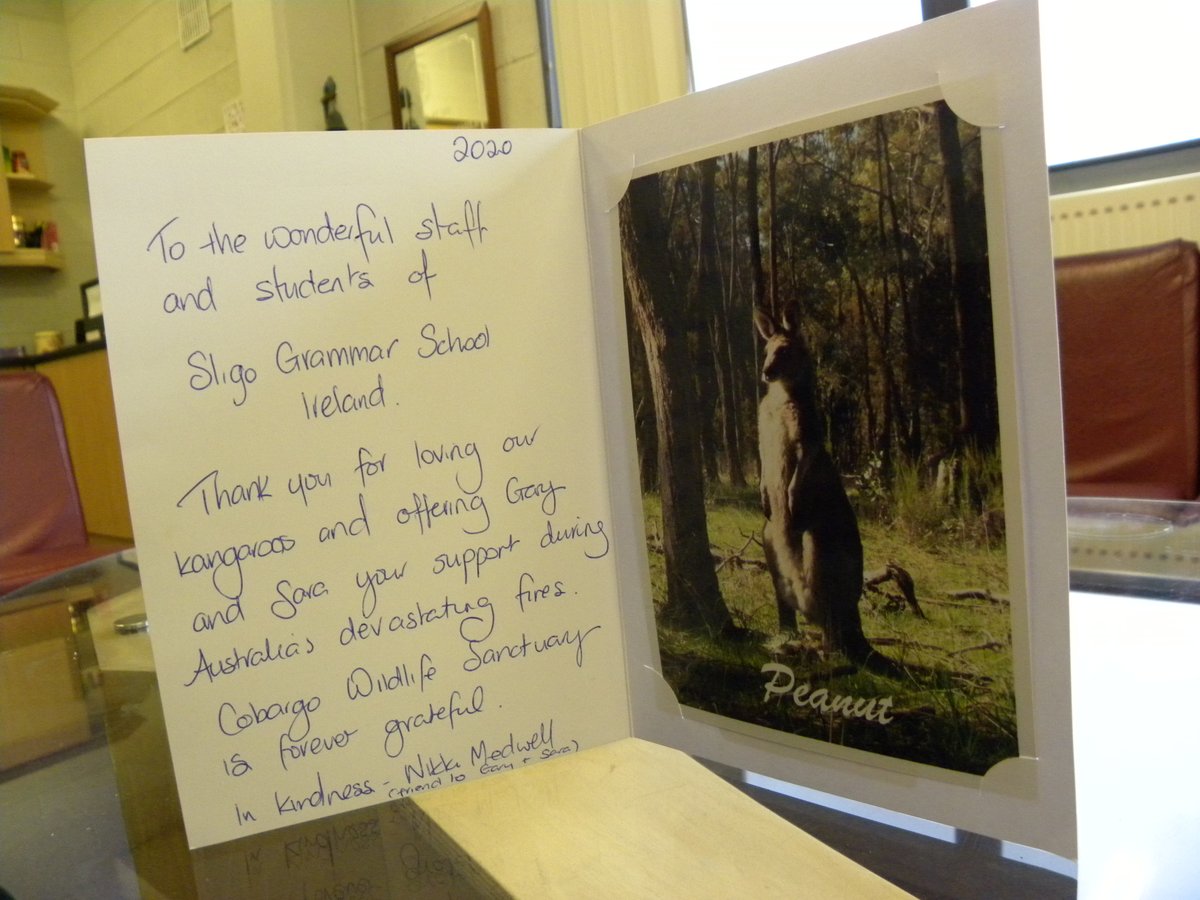 2020
To the wonderful staff
and students of
Sligo Grammar School
Ireland.
Thank you for loving our
kangaroos and offering Gary
and Sara your support during
Australia's devastating fires.
Cobargo Wildlife Sanctuary
is forever grateful.
In kindness - Nikki Medwell
(friend to Gary + Sara)
Peanut